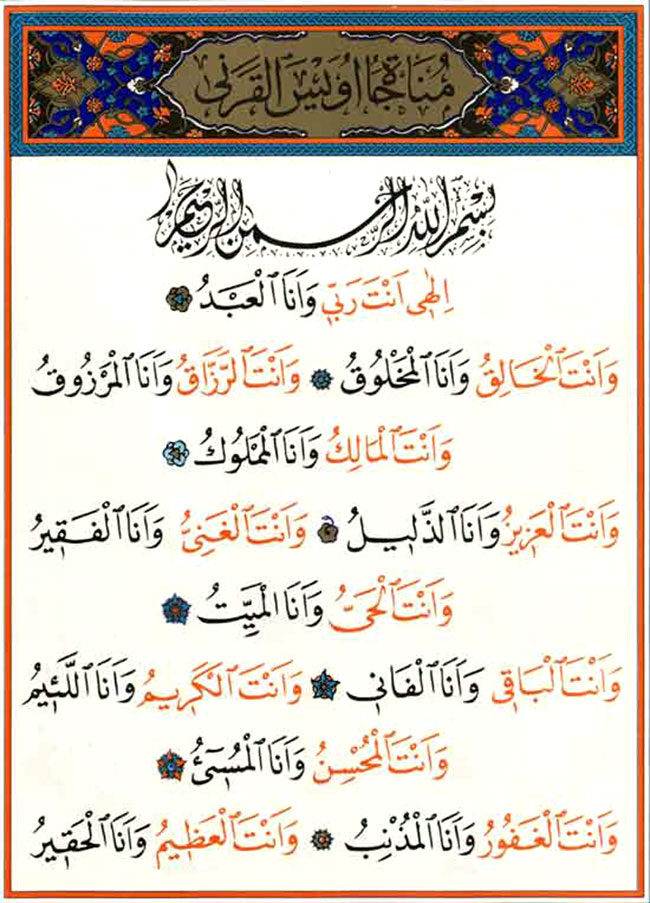 مُنَاجَاةُ اُوَيْسَ الْقَرَنٖى
بِسْمِ اللّٰهِ الرَّحْمٰنِ الرَّحٖيمِ
اِلٰهٖى اَنْتَ رَبّٖى وَاَنَا ٱلْعَبْدُ
وَاَنْتَ ٱلْخَالِقُ وَاَنَا ٱلْمَخْلُوقُ وَاَنْتَ ٱلرَّزَّاقُ وَاَنَا ٱلْمَرْزُوقُ
وَاَنْتَ ٱلْمَالِكُ وَاَنَا ٱلْمَمْلُوكُ
وَاَنْتَ ٱلْعَزٖيزُ وَاَنَا ٱلذَّلٖيلُ وَاَنْتَ ٱلْغَنِىُّ وَاَنَا ٱلْفَقٖيرُ
وَاَنْتَ ٱلْحَىُّ وَاَنَا ٱلْمَيِّتُ
وَاَنْتَ ٱلْبَاقٖى وَاَنَا ٱلْفَانٖى وَاَنْتَ ٱلْكَرٖيمُ وَاَنَا ٱللَّئٖيمُ
وَاَنْتَ ٱلْمُحْسِنُ وَاَنَا ٱلْمُسٖٓئُ
وَاَنْتَ ٱلْغَفُورُ وَاَنَا ٱلْمُذْنِبُ وَاَنْتَ ٱلْعَظٖيمُ وَاَنَا ٱلْحَقٖيرُ